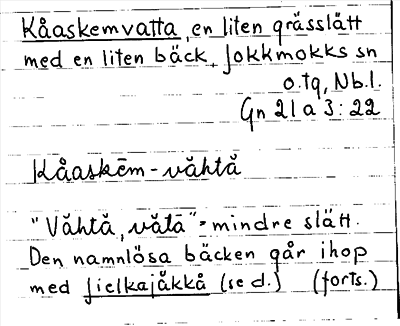 Kåaskemvatta, en liten grässlått
med en liten bäck, Jokkmokks sn
o. tg, Nb.l.
Gn 21 a 3:22
Kåaskēm-våhtå
"Våhtå, våtā" = mindre slått.
Den namnlösa bäcken går ihop
med fielkajåkkå (se d.) (forts.)